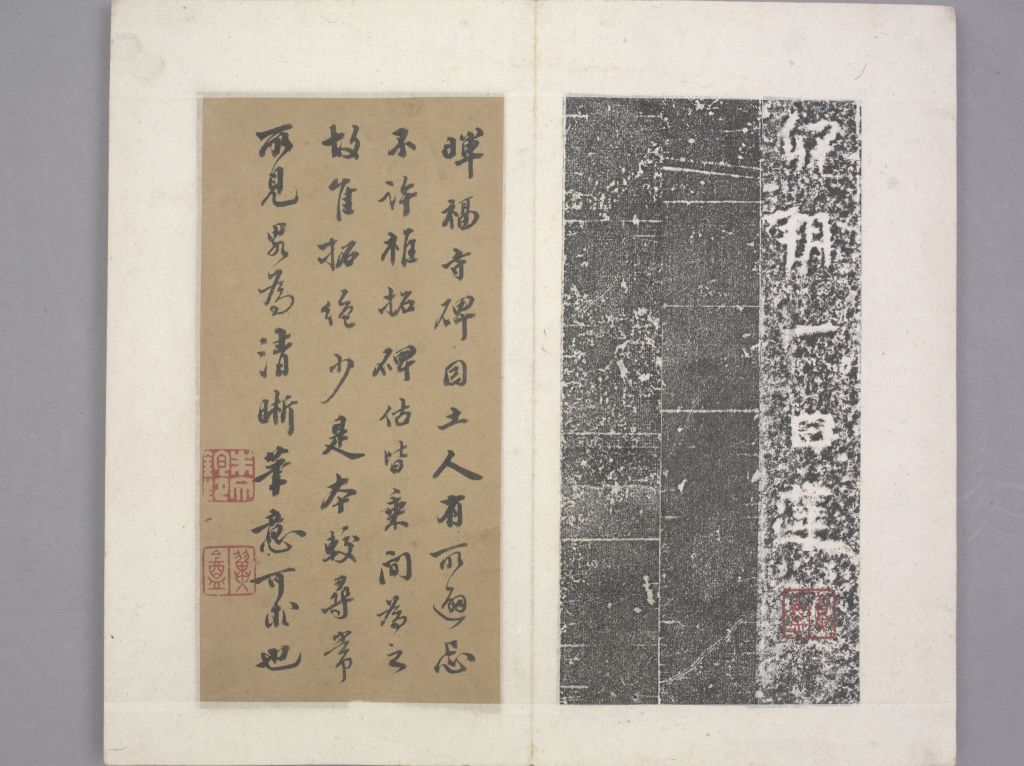 卯朔一日建
翼盦
暉福寺碑因土人有所避忌
不許椎拓碑估皆乘間為之
故佳拓絕少是本較尋常
所見畧為清晰筆意可求也
翼盦